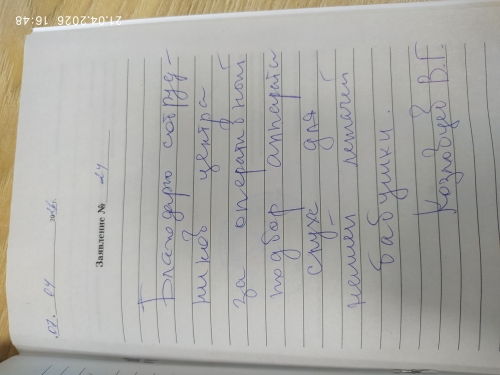 21.04.2026 16:48
07. 04 2026.
Заявление № 24
Благодарю сотруд-
ников центра
за оперативном
подбор аппарата
слуха для
бабушки.
Козловцев В.Г.